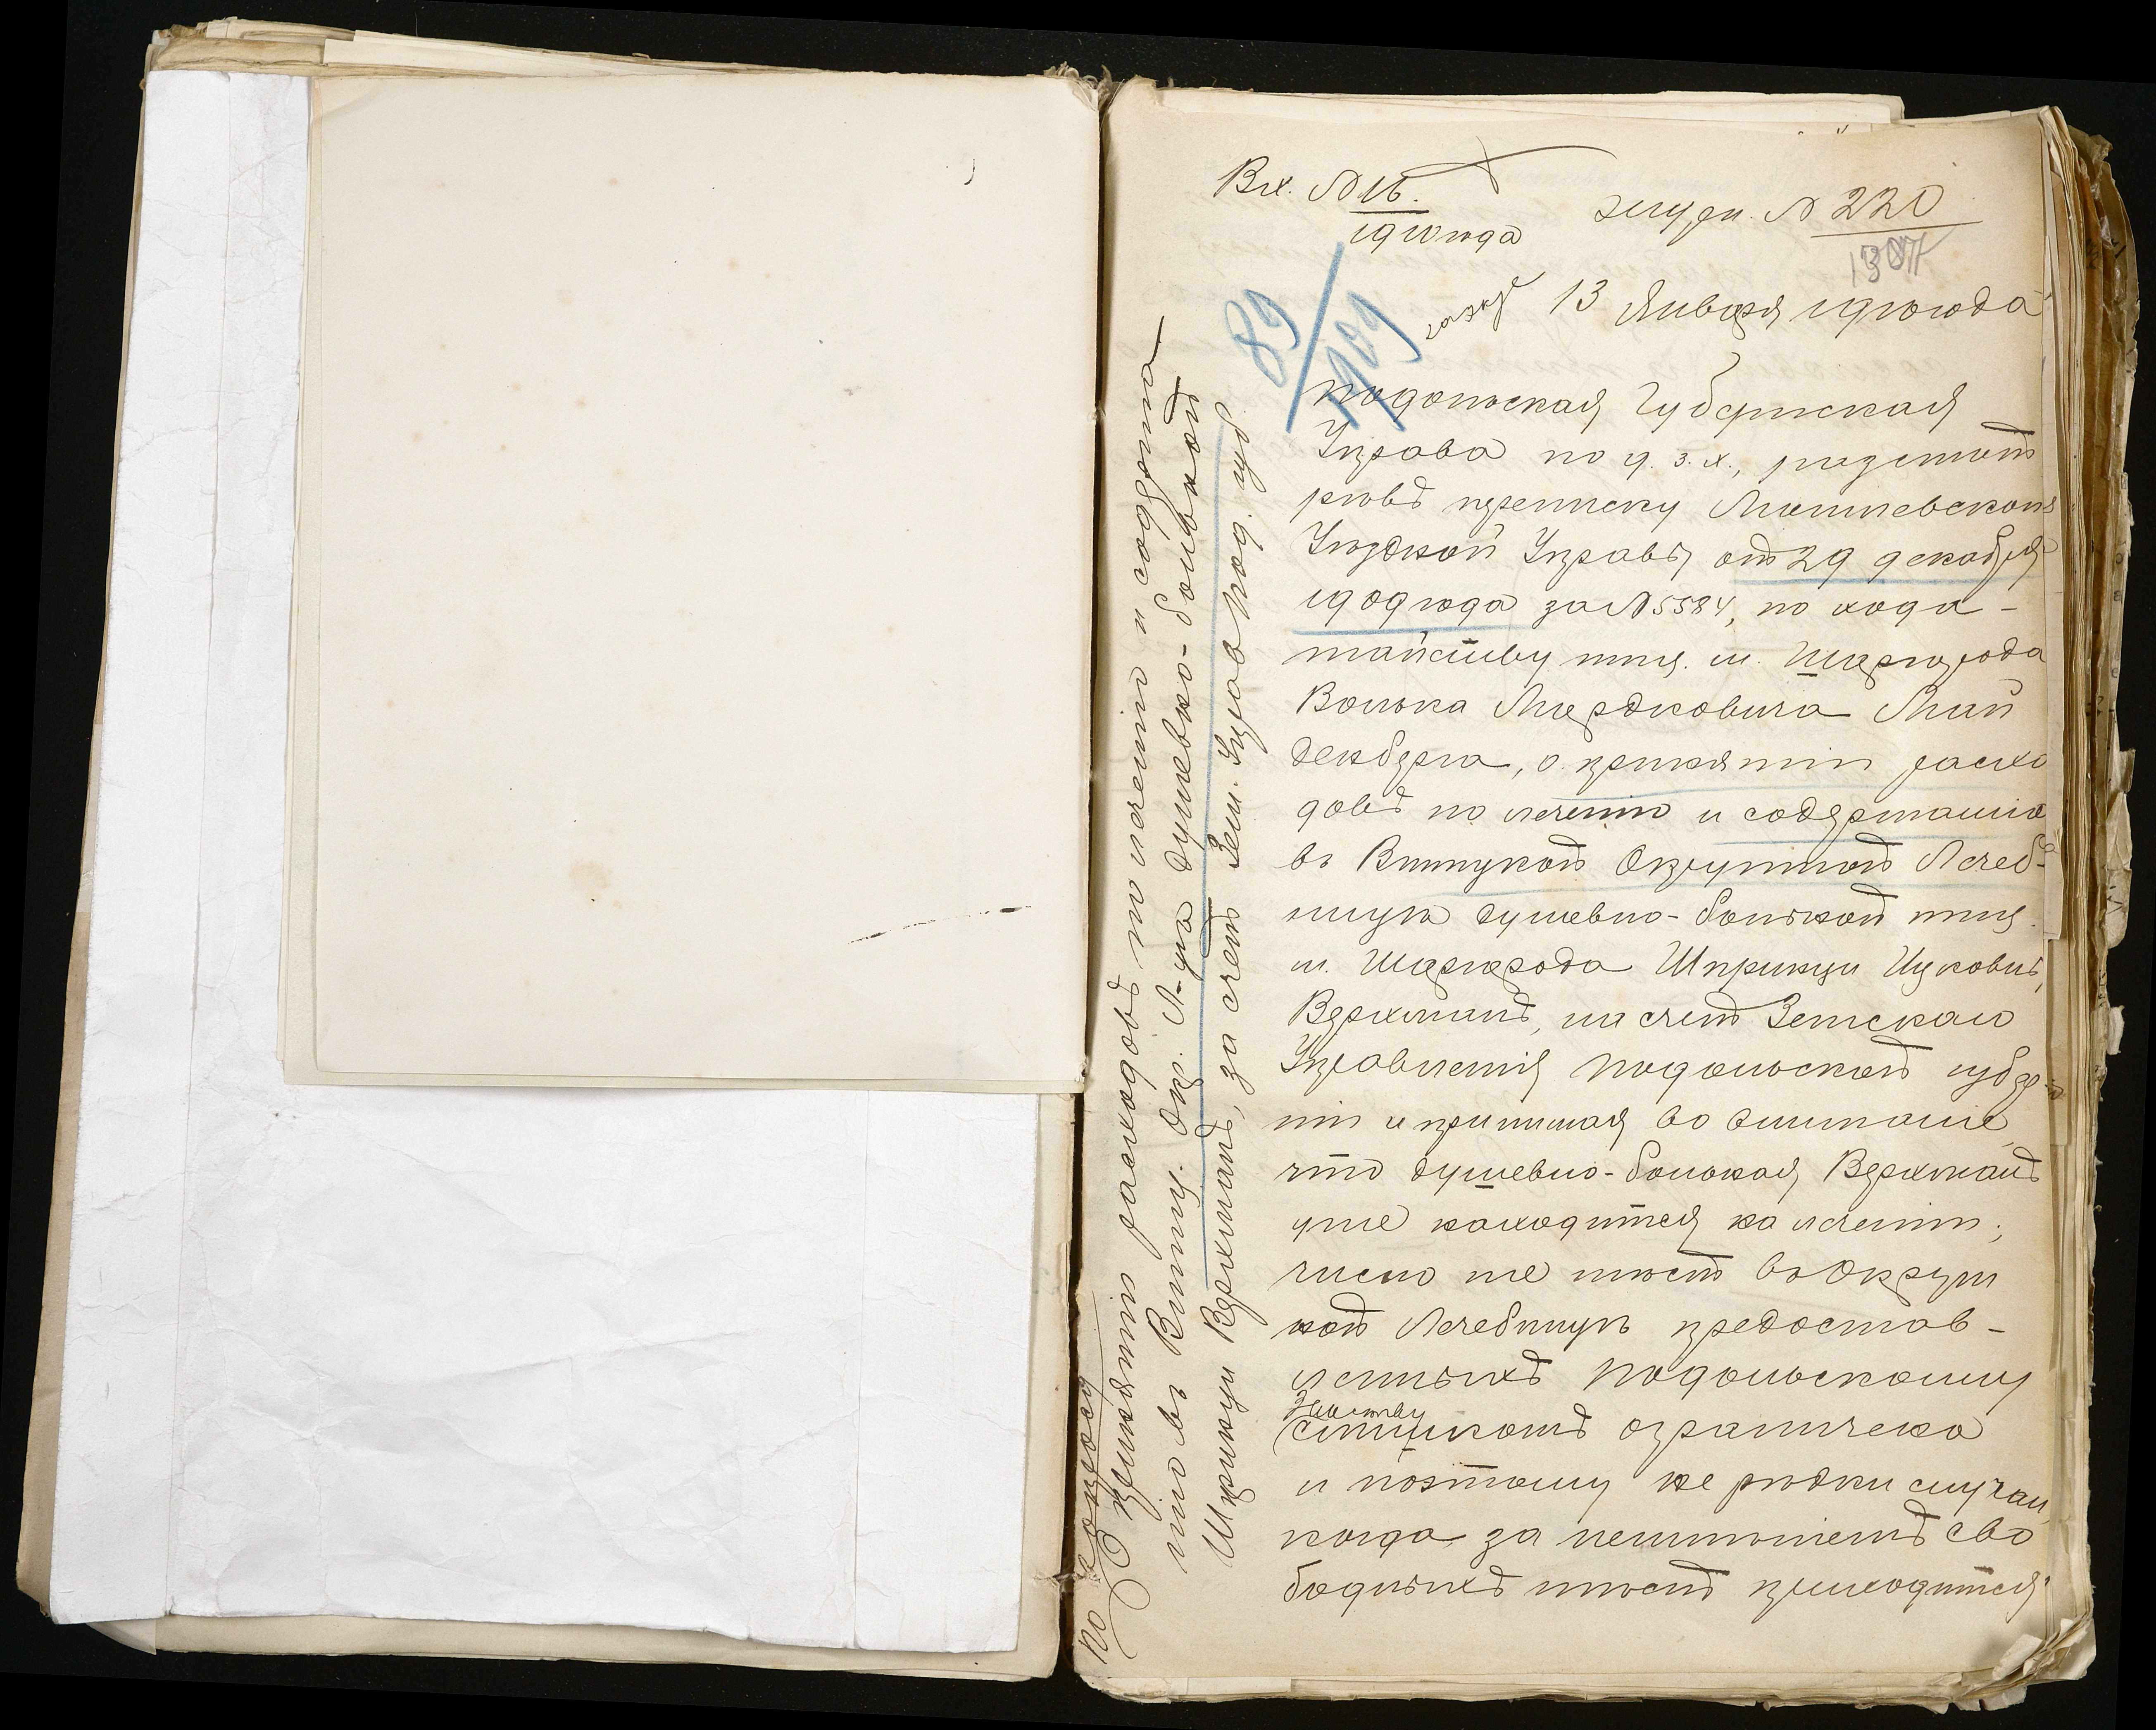 Вх. № 16.
1910 года
журн. № 220
1307
89/909
13 Января 1910 года
Подольская Губернская
Управа по д. з. х., разсмот
рѣвъ переписку Могилевской
Уѣздной Управы отъ 29 декабря
1909 года за № 5584, по хода-
тайству мѣщ. м. Шаргорода
Волька Мердковича Май
денберга, о принятіи расхо
довъ по леченію и содержанію
въ Винницкой Окружной Лечеб-
ницѣ душевно-больной мѣщ.
м. Шаргорода Шпринци Ицковны
Верхманъ, на счетъ Земскаго
Управленія Подольской губер-
ніи и принимая во вниманіе,
что душевно-больная Верхманъ
уже находится на леченіи;
число же мѣстъ въ Окруж
ной Лечебницѣ предостав-
ленныхъ Подольскому
Земству
слишкомъ ограничено
и поэтому не рѣдки случаи,
когда за неимѣніемъ сво
бодныхъ мѣстъ приходится
По вопросу
О принятіи расходовъ по леченію и содержа-
нію въ Винниц. Окр. Л-цѣ душевно-больной
Шпринци Верхманъ, за счетъ Зем. Управ. Под. губ.